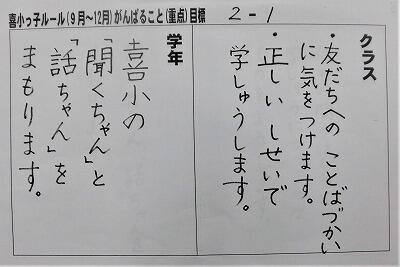 喜小っ子ルール(9月～12月)がんばること(重点)目標
2-1
クラス
・友だちへの ことばづかい
に気をつけます。
・正しい しせいで
学しゅうします。
学年
喜小の
「聞くちゃん」と
「話ちゃん」を
まもります。